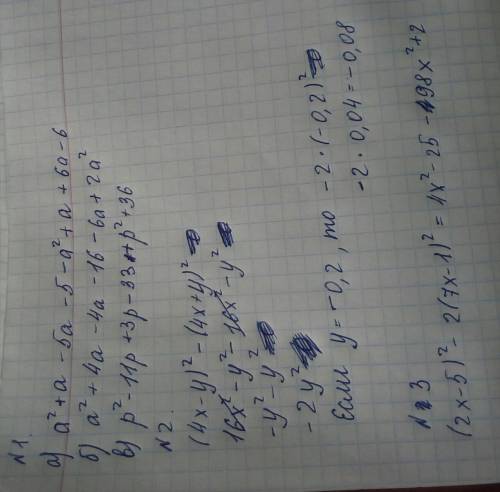 №1.
а) a²+a-5a-5-a²+a+6a-6
б) a²+4a-4a-16-6a+2a²
в) p²-11p+3p-33+p²+36
№2.
(4x-y)²-(4x+y)²
16x²-y²-16x²-y²
-y²-y²
-2y²
Если y=-0,2, то -2·(-0,2)²
-2·0,04=-0,08
№3
(2x-5)²-2(7x-1)²=4x²-25-98x²+2